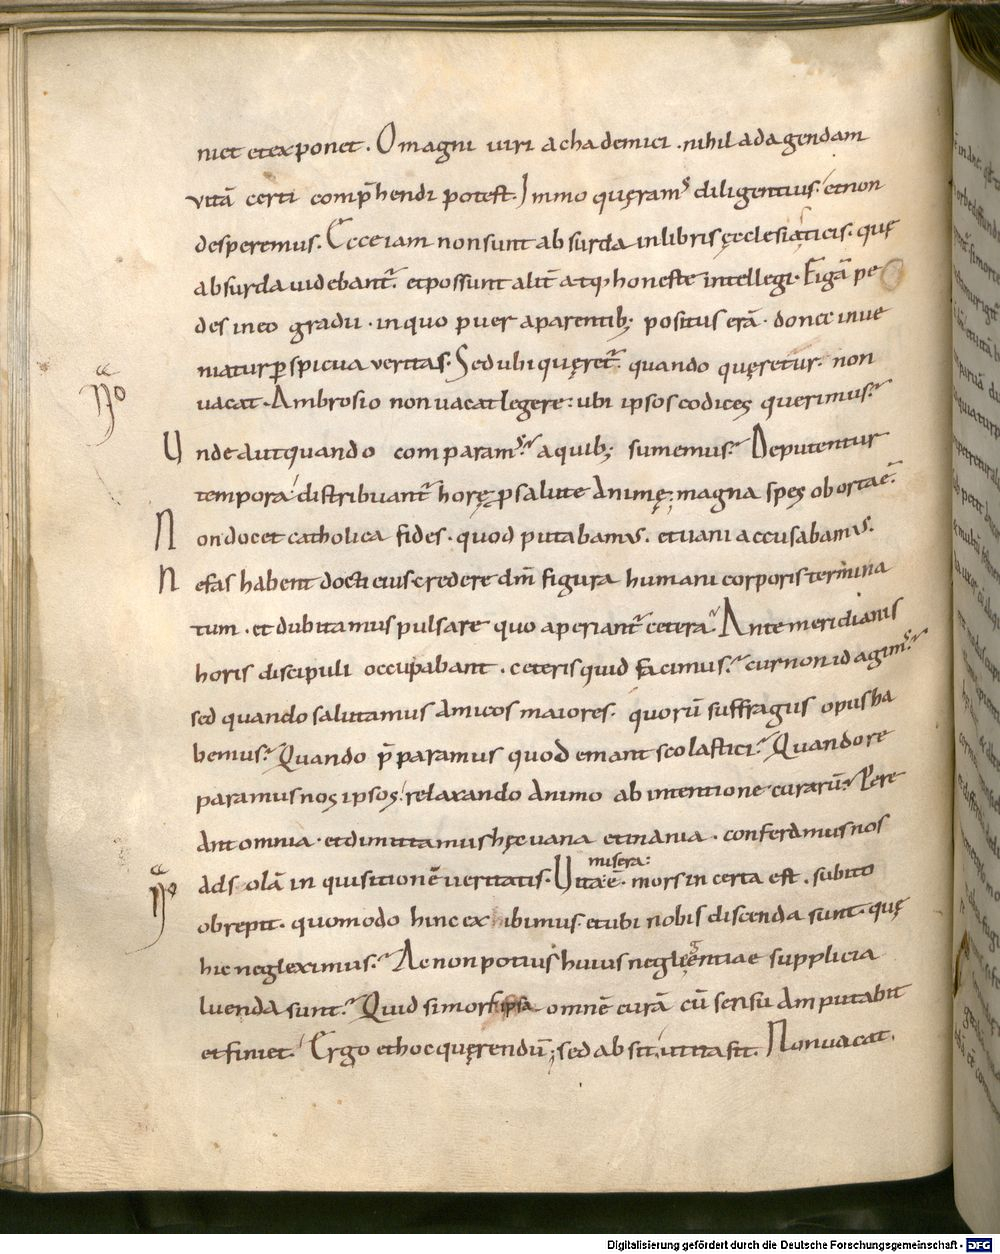 niet et exponet. O magni uiri achademici. nihil ad agendam
vitā certi comp̄hendi potest. Immo quęramꝰ diligentius. et non
desperemus. Ecce iam non sunt absurda in libris ęcclesiasticis. quę
absurda uidebant᷑. et possunt alit̄ atq; honeste intellegi. Figā pe
des in eo gradu. in quo puer a parentib; positus erā. donec inue
niatur ꝑspicua veritas. Sed ubi quęret᷑. quando quęretur. non
uacat. Ambrosio non vacat legere. ubi ipsos codices querimus?
Unde aut quando comparamꝰ? a quib; sumemus? Deputentur
tempora. distribuant᷑ horę ꝓ salute animę. magna spes oborta ē.
Non docet catholica fides. quod putabamꝰ. et uani accusabamꝰ.
Nefas habent docti eius credere dm̄ figura humani corporis termina
tum. et dubitamus pulsare quo aperiant᷑ cetera? Ante meridianis
horis discipuli occupabant. ceteris quid facimus? cur non id agimꝰ?
sed quando salutamus amicos maiores. quorū suffragiis opus ha
bemus? Quando p̄paramus quod emant scolastici? Quando re
paramus nos ipsos. relaxando animo ab intentione curarū? Pere
ant omnia. et dimittamus hęc uana et inania. conferamus nos
ad solā inquisitionē ueritatis. Uita ē misera. mors incerta est. subito
obrepit. quomodo hinc exibimus et ubi nobis discenda sunt. quę
hic neglexinus? Ac non potius huius neglegentiae supplicia
luenda sunt? Quid si mors ipsa omnē curā cū sensu amputabit
et finiet. Ergo et hoc quęrendū; sed absit. ut ita sit. Non uacat.
Digitalisierung gefördert durch die Deutsche Forschungsgemeinschaft - DFG